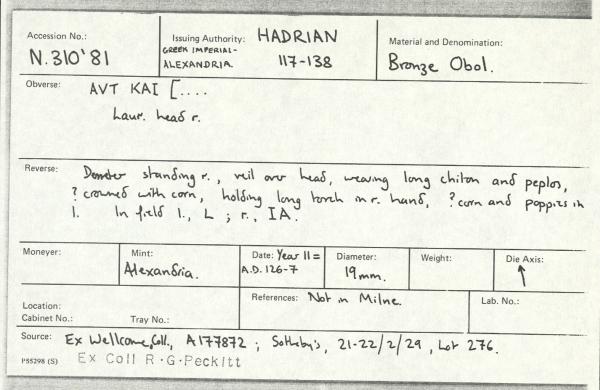 Accession No.:
N.310'81
Issuing Authority: HADRIAN
GREEK IMPERIAL-
ALEXANDRIA. 117-138
Material and Denomination:
Bronze Obol.
Obverse: AVT KAI [....
Laur. head r.
Reverse: Demeter standing r., veil over head, wearing long chiton and peplos,
? crowned with corn, holding long torch in r. hand, ? corn and poppies in
l. In field l., L ; r., IA.
Moneyer:
Mint:
Alexandria.
Date: Year 11 =
A.D. 126-7
Diameter:
19mm.
Weight:
Die Axis:
↑
Location:
Cabinet No.: Tray No.:
References: Not in Milne.
Lab. No.:
Source: Ex Wellcome Coll., A177872 ; Sotheby's, 21-22/2/29, Lot 276.
P55298 (S) Ex Coll R.G.Peckitt